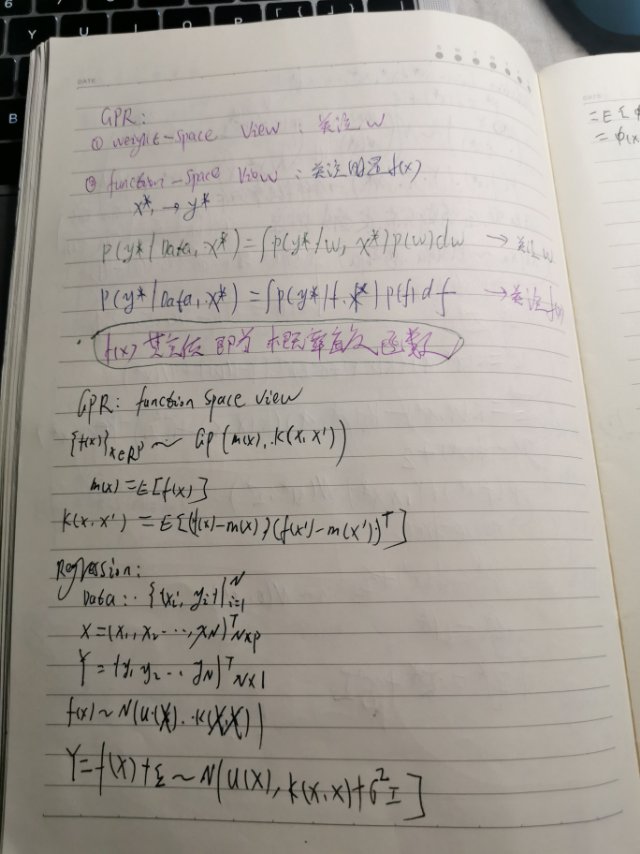 GPR:
① weight-space view: 关注 w
② function-space view: 关注 f(x)
x* → y*
P(y*|Data, x*) = ∫p(y*|w, x*)p(w)dw → 关注 w
P(y*|Data, x*) = ∫p(y*|f, x*)p(f)df → 关注 f(x)
f(x) 其实 即为 函数
GPR: function space view
{f(x)}x∈Rᵖ ~ GP(m(x), k(x, x'))
m(x) = E[f(x)]
k(x, x') = E[(f(x)-m(x))(f(x')-m(x'))ᵀ]
Regression:
Data: {(xi, yi)}ᴺi=1
X = (x1, x2 ..., xN)ᵀN×p
Y = (y1, y2 ... yN)ᵀN×1
f(x) ~ N(u(X), k(X, X))
Y = f(X) + ε ~ N[u(X), k(X, X) + σ²I]
= E[
= φ(x